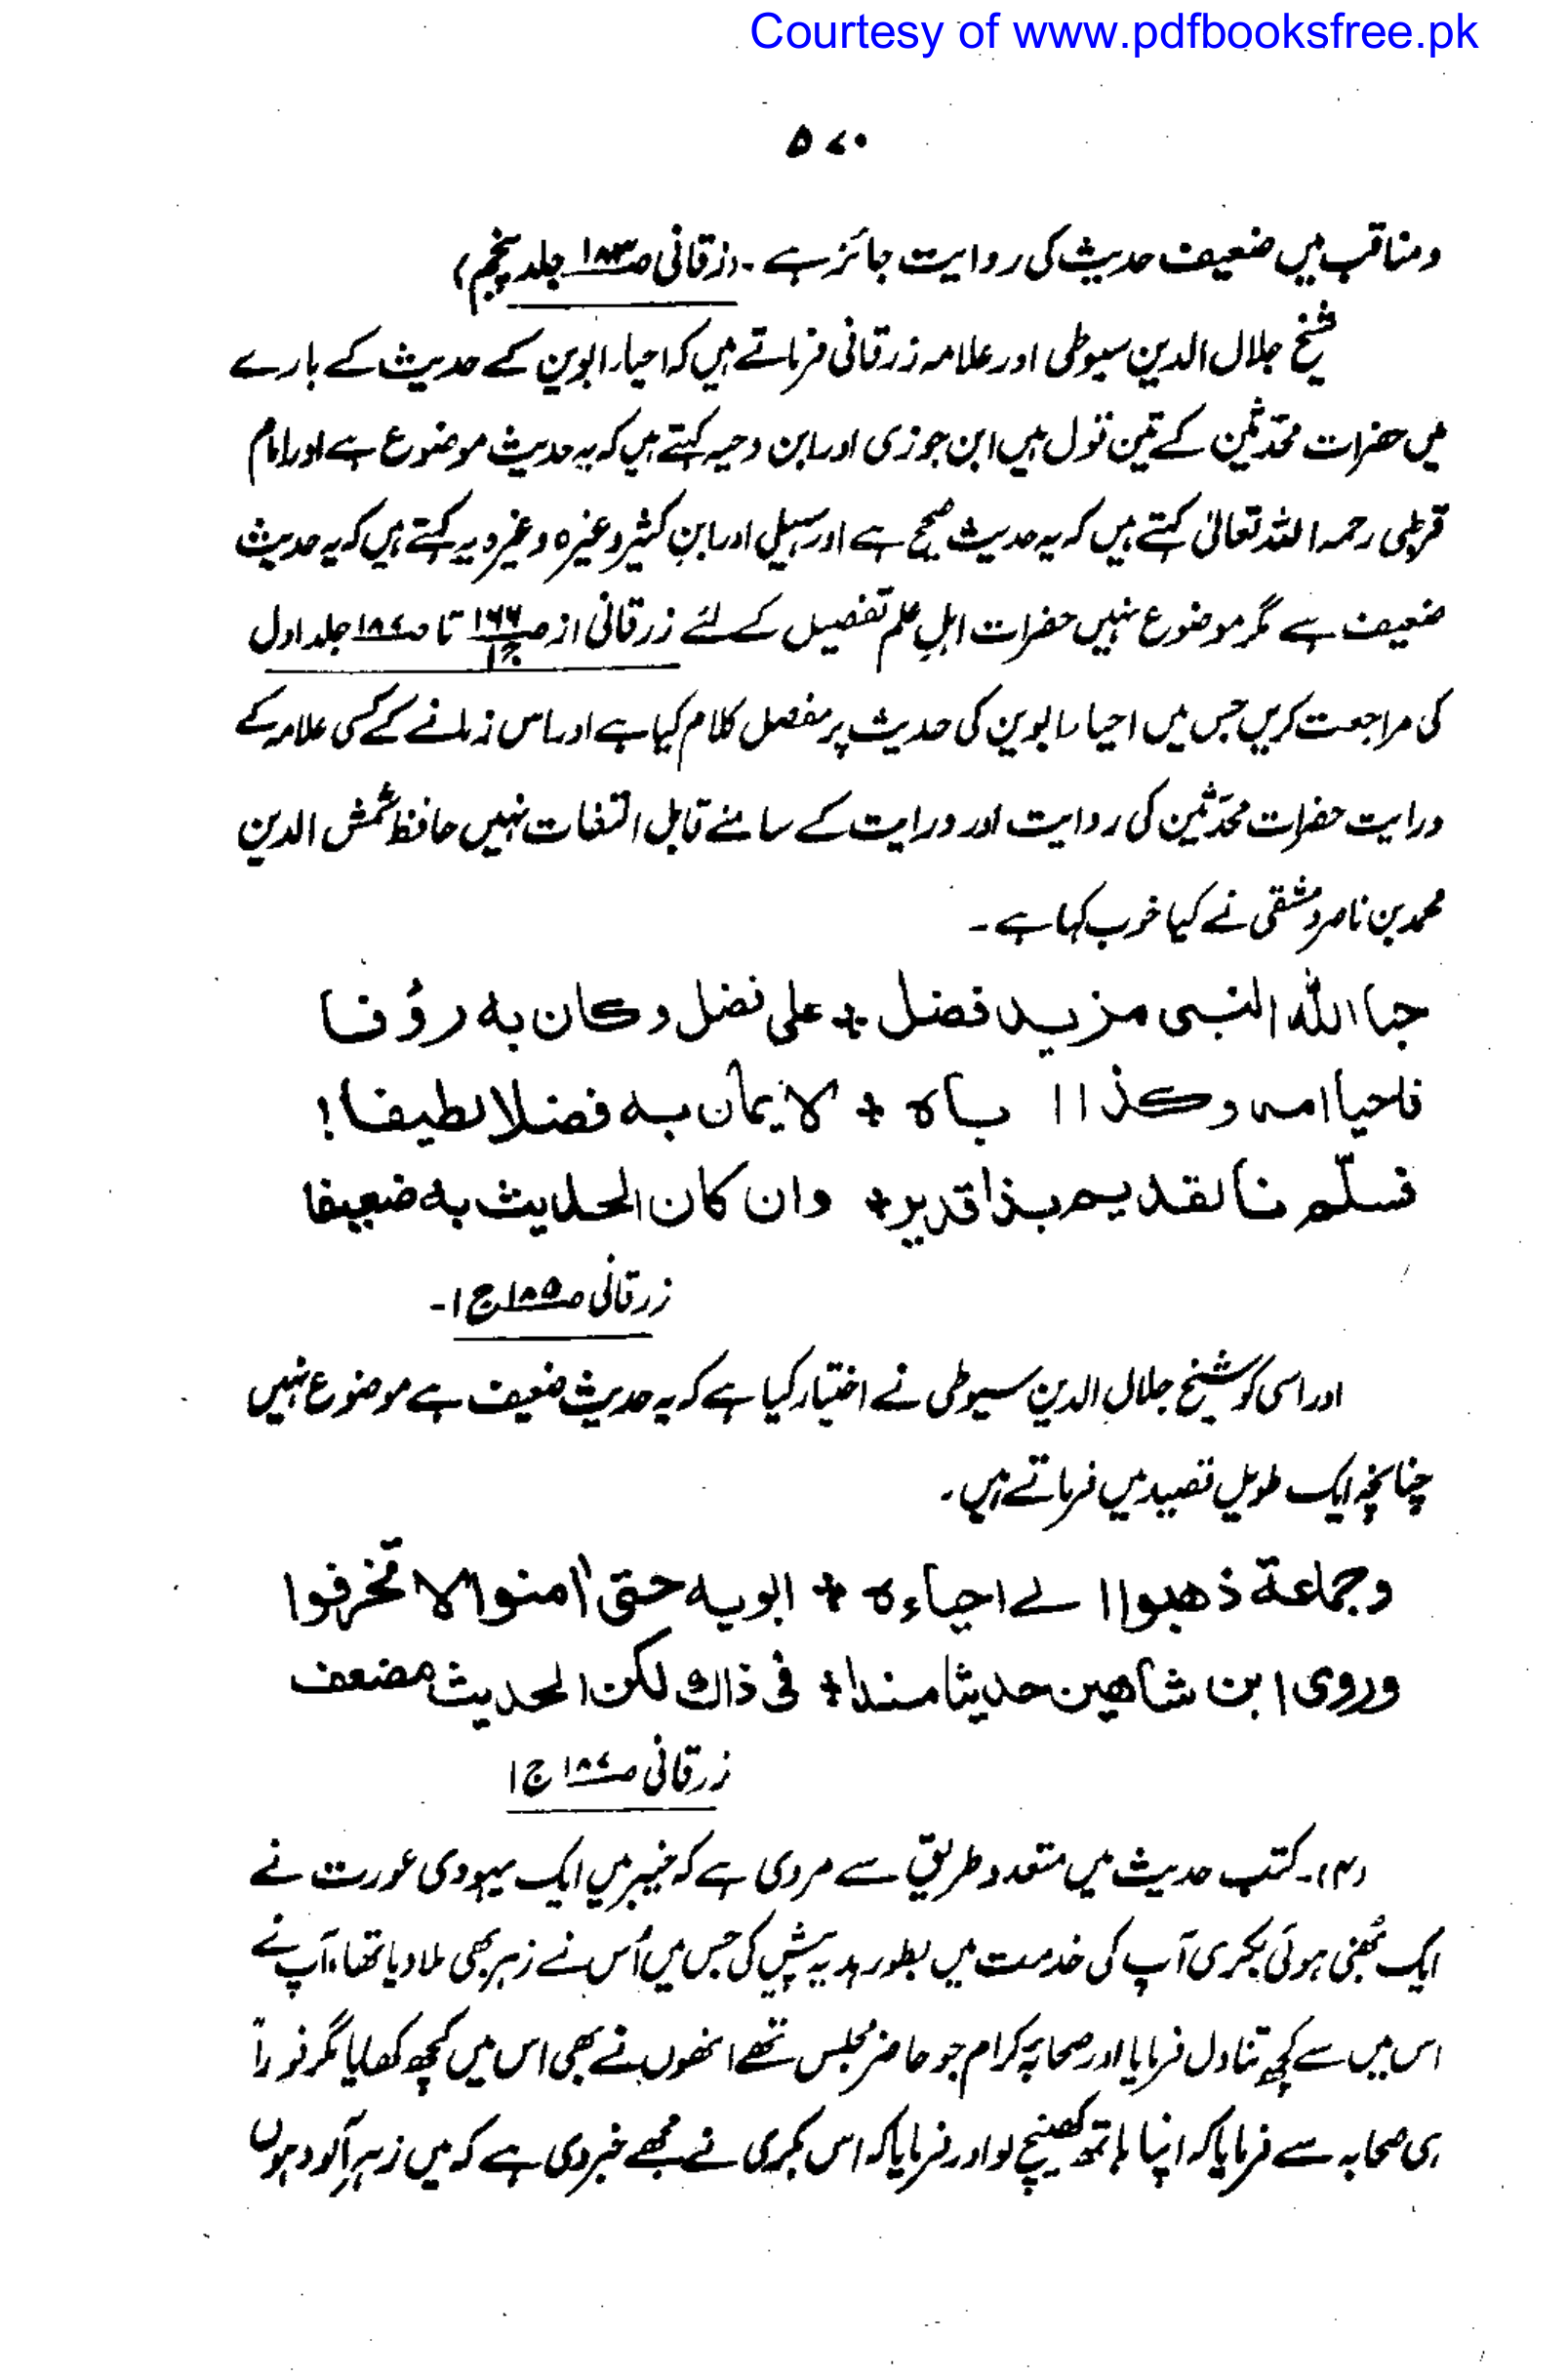 Courtesy of www.pdfbooksfree.pk
۵۷۰
ومناقب میں ضعیف حدیث کی روایت جائز ہے۔ (زرقانی ص۱۸۳ جلد پنجم)
شیخ جلال الدین سیوطی اور علامہ زرقانی فرماتے ہیں کہ احیاء ابوین کے حدیث کے بارے
میں حضرات محدّثین کے تین قول ہیں ابن جوزی اور ابن دحیہ کہتے ہیں کہ یہ حدیث موضوع ہے اور امام
قرطبی رحمہ اللہ تعالیٰ کہتے ہیں کہ یہ حدیث صحیح ہے اور سہیلی اور ابن کثیر وغیرہ وغیرہ یہ کہتے ہیں کہ یہ حدیث
ضعیف ہے مگر موضوع نہیں حضرات اہلِ علم تفصیل کے لئے زرقانی از ص۱۶۶ ج۱ تا ص۱۸۷ جلد اول
کی مراجعت کریں جس میں احیاء ابوین کی حدیث پر مفصل کلام کیا ہے اور اس زمانے کے کسی علامہ کے
درایت حضرات محدّثین کی روایت اور درایت کے سامنے قابل التفات نہیں حافظ شمش الدین
محمد بن ناصر دمشقی نے کیا خوب کہا ہے۔
حبا الله النبی مزید فضل + علی فضل وکان به رؤفا
فاحیا امه وکذا اباه + لایمان به فضلا لطیفا!
فسلّم فالقدیم بذا قدیر + وان کان الحدیث به ضعیفا
زرقانی ص۱۸۵ ج۱۔
اور اسی کو شیخ جلال الدین سیوطی نے اختیار کیا ہے کہ یہ حدیث ضعیف ہے موضوع نہیں
چنانچہ ایک طویل قصیدہ میں فرماتے ہیں۔
وجماعة ذهبوا الے احیاءه + ابویه حتی اٰمنوا لا تخرفوا
وروی ابن شاهین حدیثا مسندا + فی ذاك لکن الحدیث مضعف
زرقانی ص۱۸۷ ج۱
(۴)۔ کتب حدیث میں متعدد طریق سے مروی ہے کہ خیبر میں ایک یہودی عورت نے
ایک بُھنی ہوئی بکری آپ کی خدمت میں بطور ہدیہ پیش کی جس میں اُس نے زہر بھی ملا دیا تھا، آپ نے
اس میں سے کچھ تناول فرمایا اور صحابہ کرام جو حاضر مجلس تھے انھوں نے بھی اس میں کچھ کھایا مگر فوراً
ہی صحابہ سے فرمایا کہ اپنا ہاتھ کھینچ لو اور فرمایا کہ اس بکری نے مجھے خبر دی ہے کہ میں زہر آلود ہوں